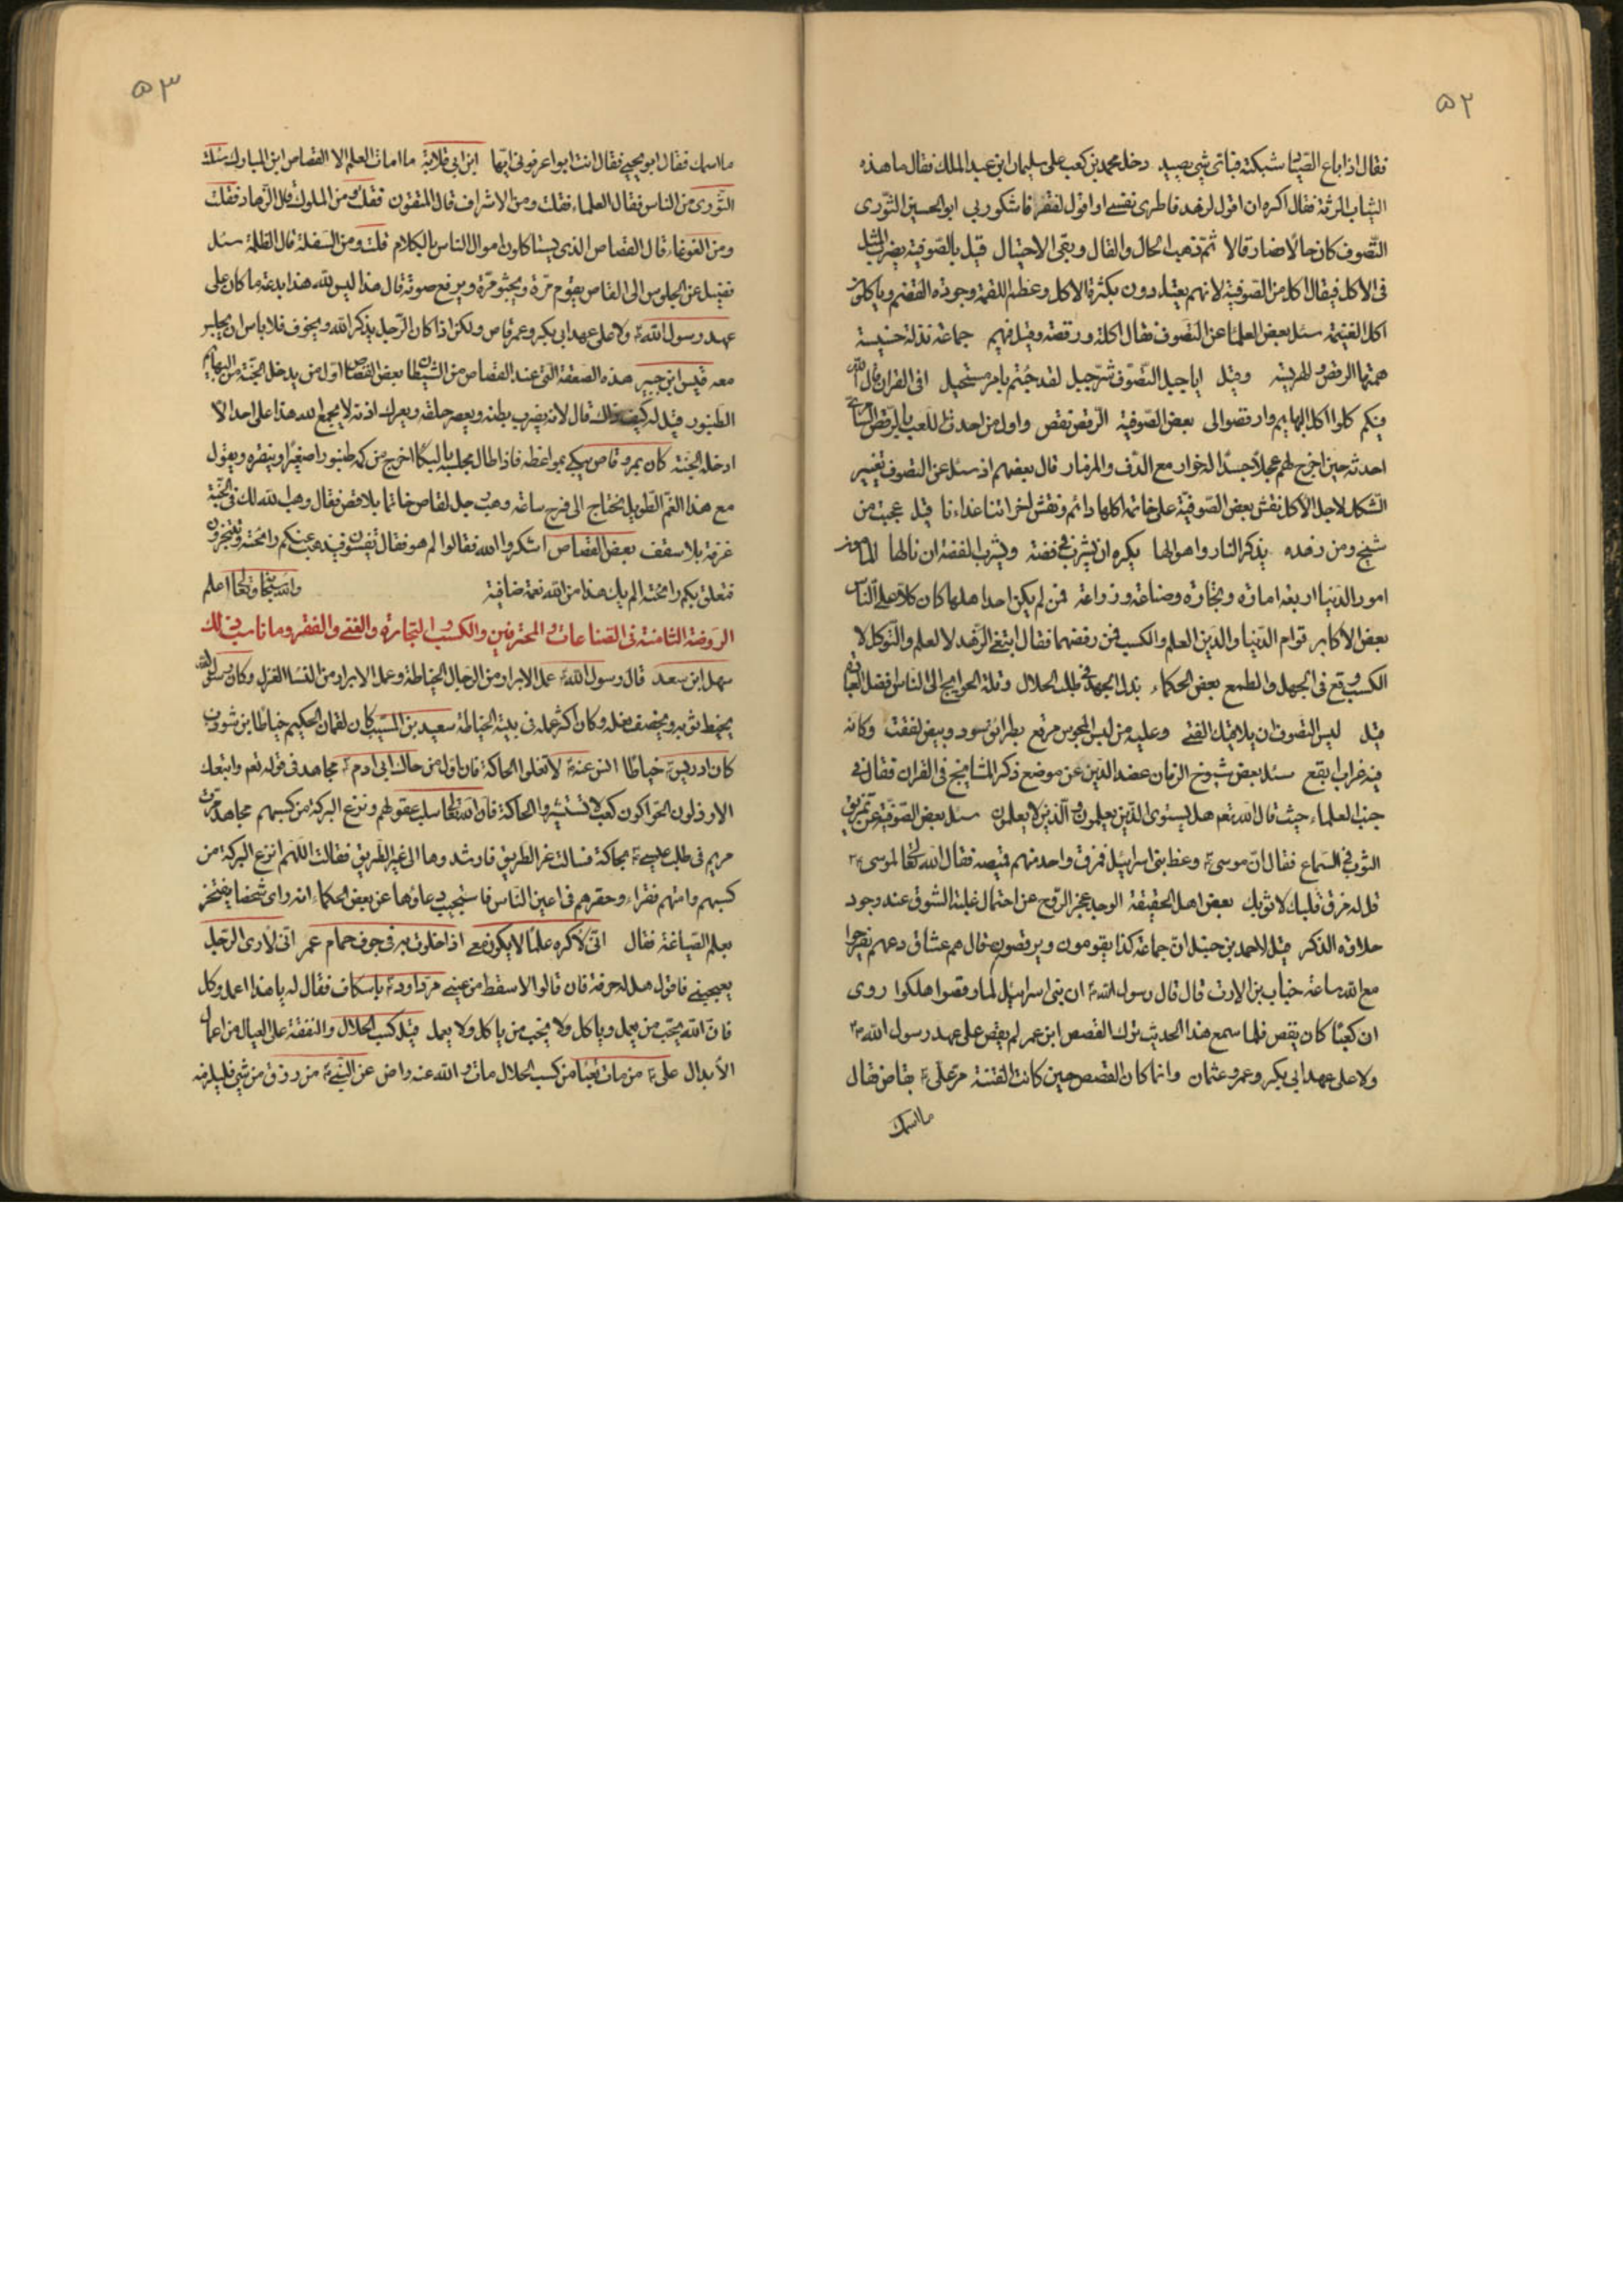 ٥٢
فقال اذا باع الصياد شبكته فبأي شيء يصيد دخل محمد بن كعب على سليمان ابن عبد الملك فقال ما هذه
الثياب الرثة فقال اكره ان اقول لزهد فاطرى نفسي او اقول لفقر فاشكو ربي ابو الحسين النوري
التصوف كان حالا فصار قالا ثم ذهب الحال والقال وبقى الاحتيال قيل بالصوفية يضرب المثل
في الاكل فيقال اكل من الصوفية لانهم يعتدون بكثرة الاكل وعظم اللقمة وجودة الهضم وياكلون
اكل الغنيمة سئل بعض العلماء عن التصوف فقال اكلة ورقصة وقيل فيهم جماعة نذلة خسيسة
همتها الرقص والهريسة وقيل ايا جيل التصوف شر جيل لقد جئتم بامر مستحيل افي القران قال الله
فيكم كلوا اكل البهايم وارقصوا لي بعض الصوفية الرقص نقص واول من احدث اللعب بالرقص السامري
احدثه حين اخرج لهم عجلا جسدا له خوار مع الدف والمزمار قال بعضهم اذ سئل عن التصوف تغيير
الشكل لاجل الاكل نقش بعض الصوفية على خاتمه اكلها دائم ونقش اخر اتنا غداءنا قيل عجبت من
شيخ ومن زهده يذكر النار واهوالها يكره ان يشرب في فضة ويشرب الفضة ان نالها المأمون
امور الدنيا اربعة امارة وتجارة وصناعة وزراعة فمن لم يكن احد اهلها كان كلا على الناس
بعض الاكابر قوام الدنيا والدين العلم والكسب فمن رفضهما فقال ابتغي الزهد لا العلم والتوكل لا
الكسب وقع في الجهل والطمع بعض الحكماء بذل الجهد في طلب الحلال وقلة الحوايج الى الناس افضل العبادة
قيل ليس التصوف ان يلاقيك الفتى وعليه من لبس المجوس مرقع بطرائق سود وبيض لفقت وكانه
فيه غراب ابقع سئل بعض شيوخ الزمان عضد الدين عن موضع ذكر المشايخ في القران فقال في
جنب العلماء حيث قال الله تعم هل يستوى الذين يعلمون والذين لا يعلمون سئل بعض الصوفية عن تمزيق
الثوب في السماع فقال ان موسى ع وعظ بني اسرائيل فمزق واحد منهم قميصه فقال الله تعالى لموسى ع
قل له مزق قلبك لا ثوبك بعض اهل الحقيقة الوجد عجز الروح عن احتمال غلبة الشوق عند وجود
حلاوة الذكر قيل لاحمد بن حنبل ان جماعة كذا يقومون ويرقصون قال هم عشاق دعهم يفرحوا
مع الله ساعة خباب بن الارت قال قال رسول الله ان بني اسرائيل لما رقصوا هلكوا روى
ان كعبا كان يقص فلما سمع هذا الحديث ترك القصص ابن عمر لم يقص على عهد رسول الله ص
ولا على عهد ابي بكر وعمر وعثمان وانما كان القصص حين كانت الفتنة مر علي ع بقاص فقال
ما اسمك
٥٣
ما اسمك فقال ابو يحيى فقال انت ابو اعرفوني ايها ابن ابي قلابة ما امات العلم الا القصاص ابن المبارك سئلت
الثوري من الناس فقال العلماء فقلت ومن الاشراف قال المتقون فقلت ومن الملوك قال الزهاد فقلت
ومن الغوغاء قال القصاص الذي يستاكلون اموال الناس بالكلام قلت ومن السفلة قال الظلمة سئل
فضيل عن الجلوس الى القاص يقوم مرة ويجثو مرة ويرفع صوته قال هذا ليس لله هذا بدعة ما كان على
عهد رسول الله ولا على عهد ابي بكر وعمر قاص ولكن اذا كان الرجل يذكر الله ويخوف فلا باس ان يجلس
معه قيس ابن جبير هذه الصعقة التي عند القصاص من الشيطان بعض القصاص اول من يدخل الجنة من البهايم
الطنبور قيل له كيف ذلك قال لانه يضرب بطنه ويعصر حلقه ويعرك اذنه لا يجمع الله هذا على احد الا
ادخله الجنة كان بمرو قاص يبكي بمواعظه فاذا طال مجلسه بالبكا اخرج من كمه طنبورا صغيرا وينقره ويقول
مع هذا الغم الطويل نحتاج الى فرح ساعة وهب رجل لقاص خاتما بلا فص فقال وهب الله لك في الجنة
غرفة بلا سقف بعض القصاص اشكروا الله فقالوا لم هو فقال تفسون فيذهب عنكم رائحته وتتبخرون
فتعلق بكم رائحته الم يك هذا من الله نعمة ضافية والله سبحانه وتعالى اعلم
الروضة الثامنة في الصناعات والمحترفين والكسب والتجارة والغنى والفقر وما ناسب ذلك
سهل ابن سعد قال رسول الله عمل الابرار من الرجال الخياطة وعمل الابرار من النساء الغزل وكان رسول الله
يخيط ثوبه ويخصف نعله وكان اكثر عمله في بيته الخياطة سعيد بن المسيب كان لقمان الحكيم خياطا ابن شوذب
كان ادريس ع خياطا انس عنه لا تعلوا الحاكة فان اول من حاك ابي ادم ع مجاهد في قوله تعم واتبعك
الارذلون الحواكون كعب لا تستشيروا الحاكة فان الله تعالى سلب عقولهم ونزع البركة من كسبهم مجاهد مرت
مريم في طلب عيسى ع بحاكة فسالت عن الطريق فارشدوها الى غير الطريق فقالت اللهم انزع البركة من
كسبهم وامتهم فقراء وحقرهم في اعين الناس فاستجيب دعاؤها عن بعض الحكماء انه راى شخصا يفتخر
بعلم الصياغة فقال اني لاكره علما لا يكون معي اذا خلوت به في جوف حمام عمر اني لارى الرجل
يعجبني فاقول هل له حرفة فان قالوا لا سقط من عيني مر داود ع باسكاف فقال له يا هذا اعمل وكل
فان الله يحب من يعمل وياكل ولا يحب من ياكل ولا يعمل قيل كسب الحلال والنفقة على العيال من اعمال
الابدال علي ع من مات تعبا من كسب الحلال مات والله عنه راض عن النبي ص من رزق من شيء فليلزمه